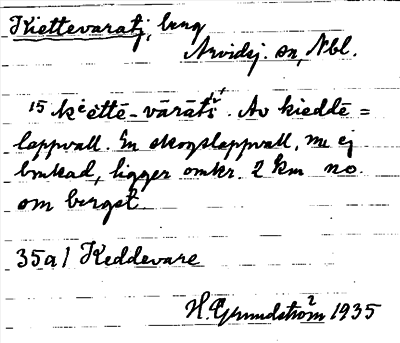 Kiettevaratj, berg
Arvidsj. sn, Nbl.
15 kèèttē-vārātj. Av kieddē =
lappvall. En skogslappvall, nu ej
brukad, ligger omkr. 2 km no.
om berget.
35a/ Keddevare
H. Grundström 1935